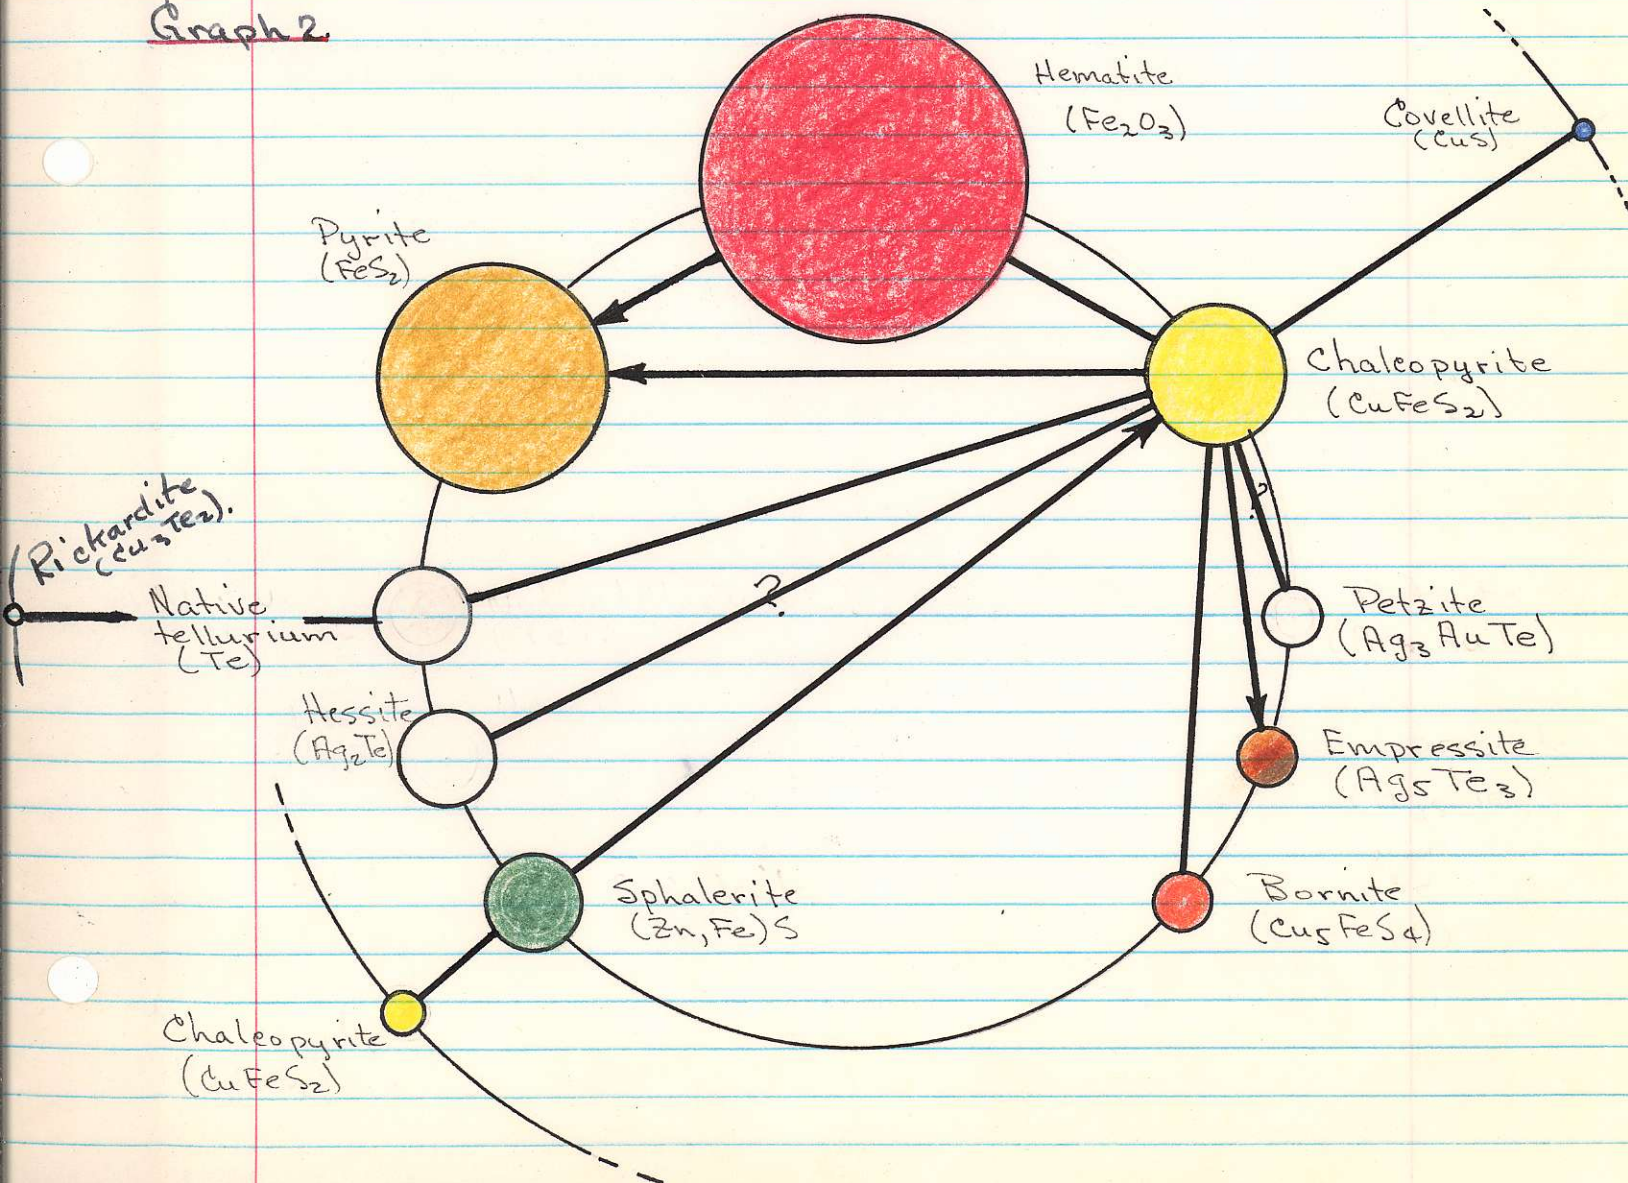 Graph 2
Hematite
(Fe₂O₃)
Covellite
(CuS)
Pyrite
(FeS₂)
Chalcopyrite
(CuFeS₂)
Rickardite
(Cu₃Te₂).
Native
tellurium
(Te)
?
?
Petzite
(Ag₃AuTe)
Hessite
(Ag₂Te)
Empressite
(Ag₅Te₃)
Sphalerite
(Zn,Fe)S
Bornite
(Cu₅FeS₄)
Chalcopyrite
(CuFeS₂)